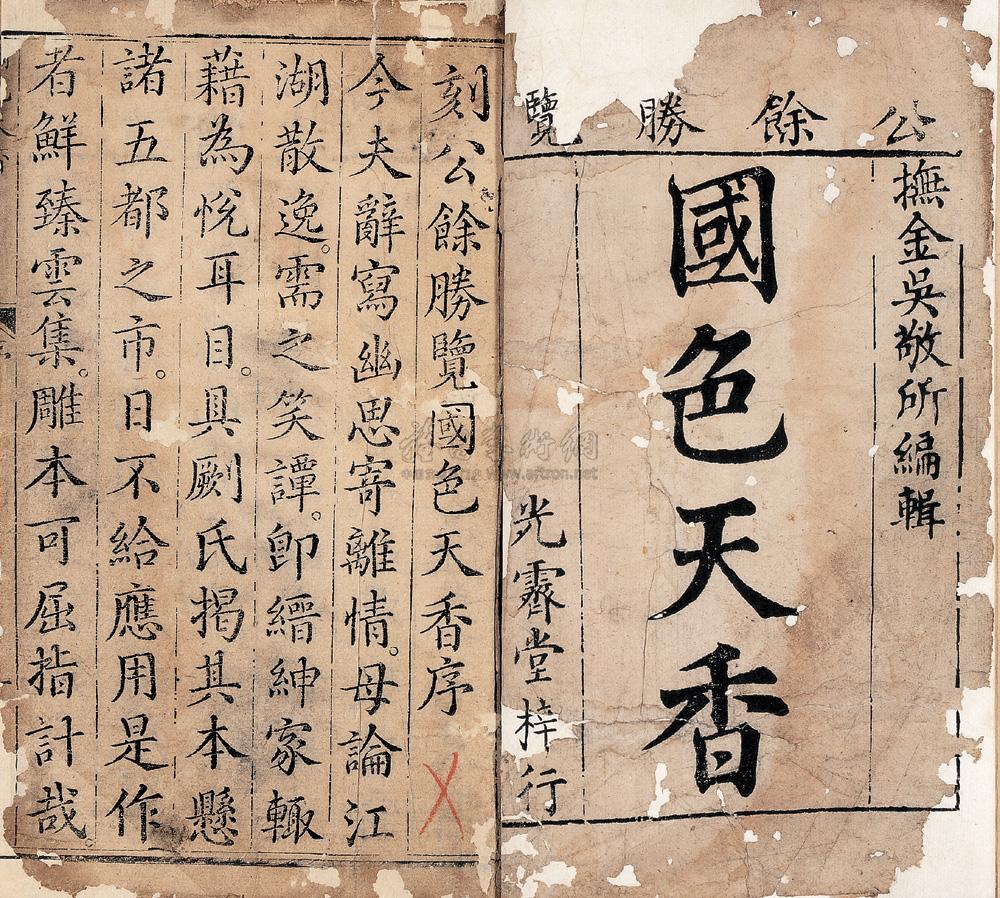 公餘勝覽
撫金吳敬所編輯
國色天香
光霽堂梓行
刻公餘勝覽國色天香序
今夫辭寫幽思寄離情。母論江
湖散逸。需之笑譚。卽縉紳家輙
藉為悅耳目。具劂氏揭其本懸
諸五都之市。日不給應用是作
者鮮臻雲集。雕本可屈指計哉。
www.artxun.net